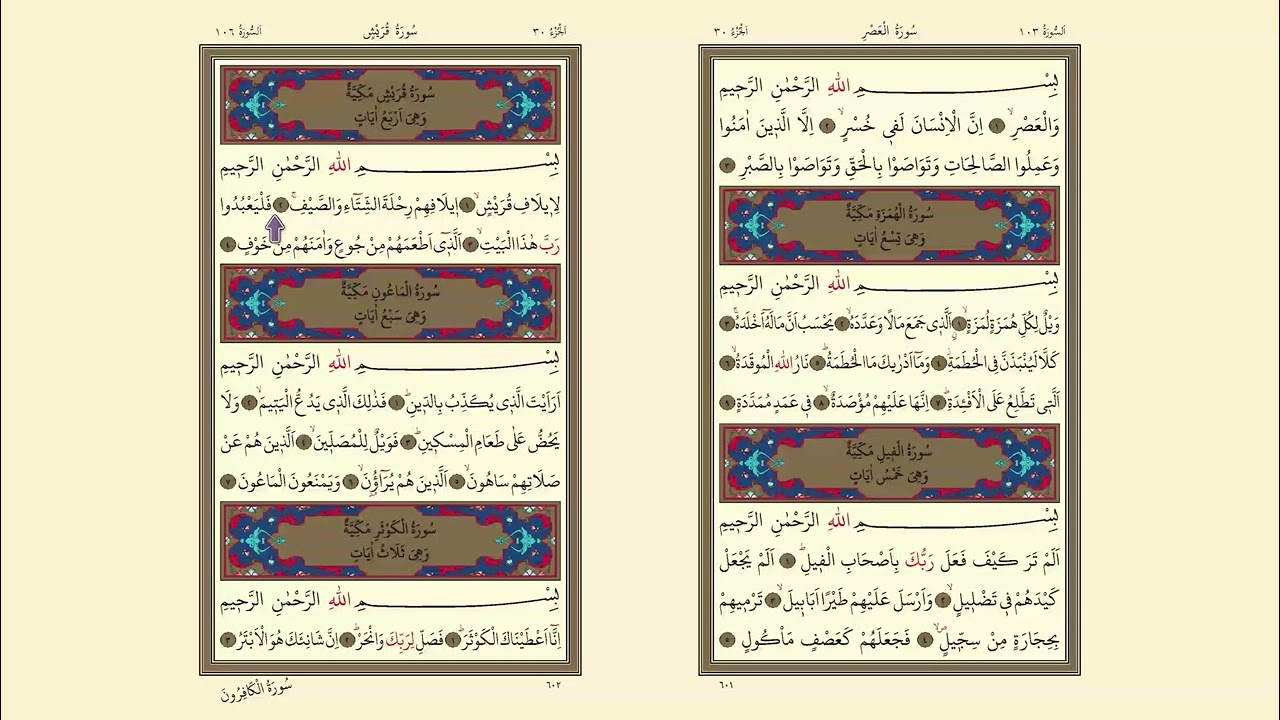 اَلسُّورَةُ ١٠٣
سُورَةُ الْعَصْرِ
اَلْجُزْءُ ٣٠
بِسْمِ اللهِ الرَّحْمٰنِ الرَّحِيمِ
وَالْعَصْرِۙ ١ اِنَّ الْاِنْسَانَ لَفِى خُسْرٍۙ ٢ اِلَّا الَّذِينَ اٰمَنُوا
وَعَمِلُوا الصَّالِحَاتِ وَتَوَاصَوْا بِالْحَقِّ وَتَوَاصَوْا بِالصَّبْرِ ٣
سُورَةُ الْهُمَزَةِ مَكِّيَّةٌ
وَهِىَ تِسْعُ اٰيَاتٍ
بِسْمِ اللهِ الرَّحْمٰنِ الرَّحِيمِ
وَيْلٌ لِكُلِّ هُمَزَةٍ لُمَزَةٍۙ ١ اَلَّذِى جَمَعَ مَالًا وَعَدَّدَهُۙ ٢ يَحْسَبُ اَنَّ مَالَهُٓ اَخْلَدَهُۚ ٣
كَلَّا لَيُنْبَذَنَّ فِى الْحُطَمَةِۘ ٤ وَمَٓا اَدْرٰيكَ مَا الْحُطَمَةُۜ ٥ نَارُ اللهِ الْمُوقَدَةُۙ ٦
اَلَّتِى تَطَّلِعُ عَلَى الْاَفْـِٔدَةِۜ ٧ اِنَّهَا عَلَيْهِمْ مُؤْصَدَةٌۙ ٨ فِى عَمَدٍ مُمَدَّدَةٍ ٩
سُورَةُ الْفِيلِ مَكِّيَّةٌ
وَهِىَ خَمْسُ اٰيَاتٍ
بِسْمِ اللهِ الرَّحْمٰنِ الرَّحِيمِ
اَلَمْ تَرَ كَيْفَ فَعَلَ رَبُّكَ بِاَصْحَابِ الْفِيلِۜ ١ اَلَمْ يَجْعَلْ
كَيْدَهُمْ فِى تَضْلِيلٍۙ ٢ وَاَرْسَلَ عَلَيْهِمْ طَيْرًا اَبَابِيلَۙ ٣ تَرْمِيهِمْ
بِحِجَارَةٍ مِنْ سِجِّيلٍۖ ٤ فَجَعَلَهُمْ كَعَصْفٍ مَاْكُولٍ ٥
٦٠١
اَلْجُزْءُ ٣٠
سُورَةُ قُرَيْشٍ
اَلسُّورَةُ ١٠٦
سُورَةُ قُرَيْشٍ مَكِّيَّةٌ
وَهِىَ اَرْبَعُ اٰيَاتٍ
بِسْمِ اللهِ الرَّحْمٰنِ الرَّحِيمِ
لِاِيلَافِ قُرَيْشٍۙ ١ اِيلَافِهِمْ رِحْلَةَ الشِّتَٓاءِ وَالصَّيْفِۚ ٢ فَلْيَعْبُدُوا
رَبَّ هٰذَا الْبَيْتِۙ ٣ اَلَّذِٓى اَطْعَمَهُمْ مِنْ جُوعٍ وَاٰمَنَهُمْ مِنْ خَوْفٍ ٤
سُورَةُ الْمَاعُونِ مَكِّيَّةٌ
وَهِىَ سَبْعُ اٰيَاتٍ
بِسْمِ اللهِ الرَّحْمٰنِ الرَّحِيمِ
اَرَاَيْتَ الَّذِى يُكَذِّبُ بِالدِّينِۜ ١ فَذٰلِكَ الَّذِى يَدُعُّ الْيَتِيمَۙ ٢ وَلَا
يَحُضُّ عَلٰى طَعَامِ الْمِسْكِينِۜ ٣ فَوَيْلٌ لِلْمُصَلِّينَۙ ٤ اَلَّذِينَ هُمْ عَنْ
صَلَاتِهِمْ سَاهُونَۙ ٥ اَلَّذِينَ هُمْ يُرَٓاؤُ۫نَۙ ٦ وَيَمْنَعُونَ الْمَاعُونَ ٧
سُورَةُ الْكَوْثَرِ مَكِّيَّةٌ
وَهِىَ ثَلَاثُ اٰيَاتٍ
بِسْمِ اللهِ الرَّحْمٰنِ الرَّحِيمِ
اِنَّٓا اَعْطَيْنَاكَ الْكَوْثَرَۜ ١ فَصَلِّ لِرَبِّكَ وَانْحَرْۜ ٢ اِنَّ شَانِئَكَ هُوَ الْاَبْتَرُ ٣
٦٠٢
سُورَةُ الْكَافِرُونَ